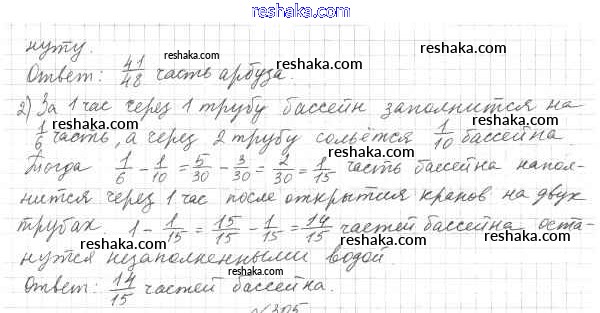 reshaka.com
нуту.
reshaka.com
Ответ: 41/48 часть арбуза.
reshaka.com
reshaka.com
2) За 1 час через 1 трубу бассейн заполнится на
reshaka.com
1/6 часть, а через 2 трубу сольётся 1/10 бассейна
reshaka.com
reshaka.com
Тогда 1/6 - 1/10 = 5/30 - 3/30 = 2/30 = 1/15 часть бассейна напол-
нится через 1 час после открытия кранов на двух
reshaka.com
трубах. 1 - 1/15 = 15/15 - 1/15 = 14/15 частей бассейна оста-
reshaka.com
reshaka.com
нутся незаполненными водой.
reshaka.com
Ответ: 14/15 частей бассейна.
reshaka.com
№305